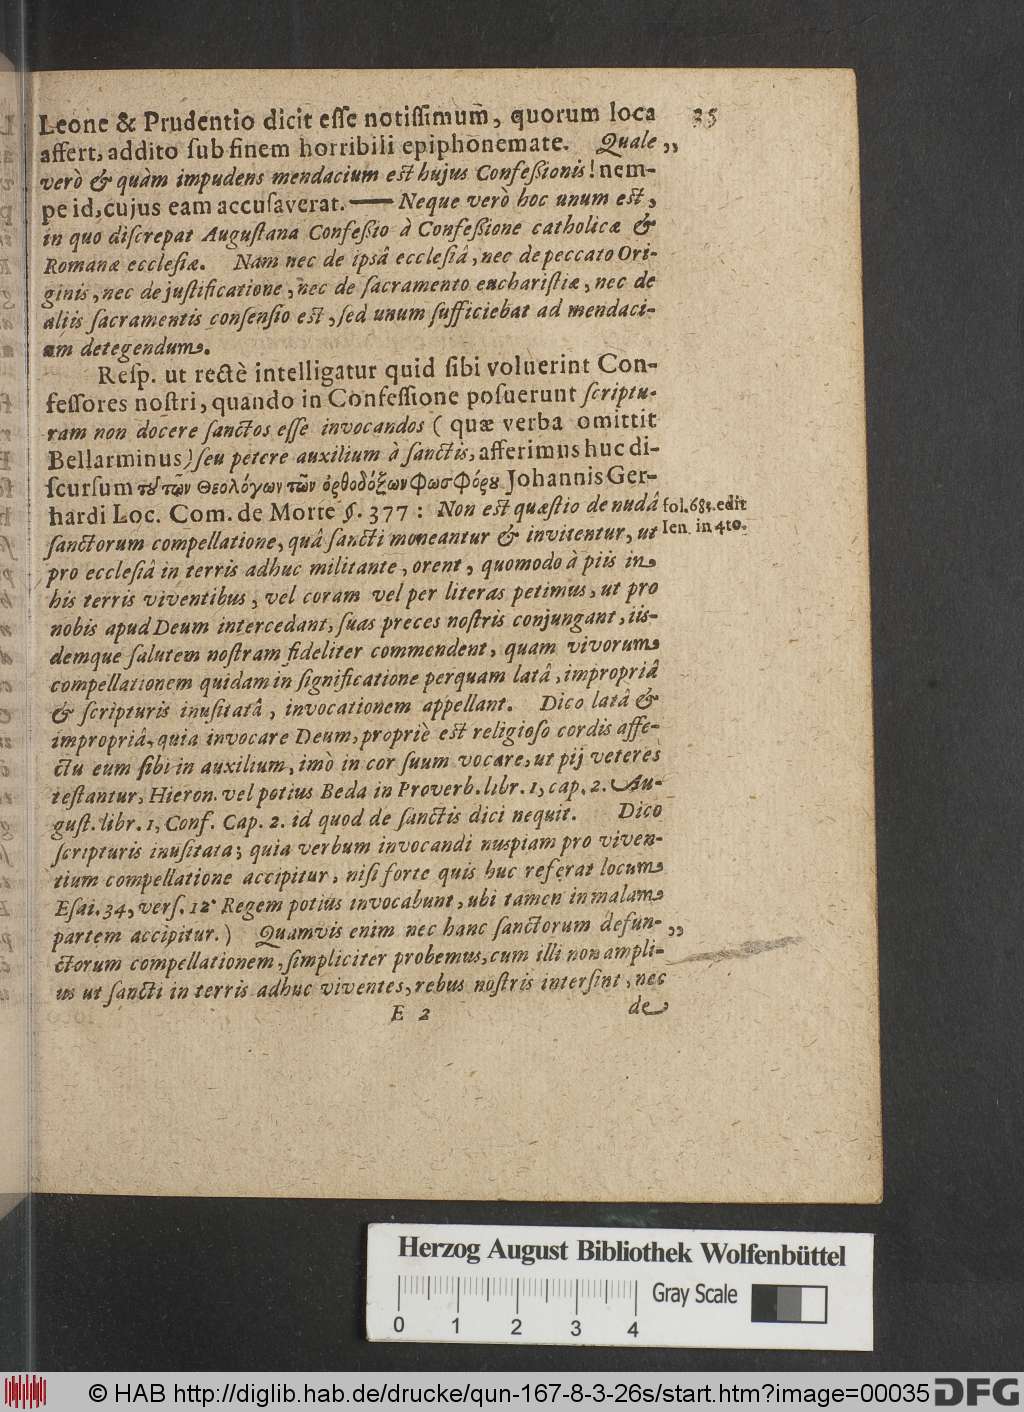 35
Leone & Prudentio dicit eſſe notiſſimum̄, quorum loca
affert, addito ſub finem horribili epiphonemate. Quale „
verò & quàm impudens mendacium est hujus Confeßionis! nem-
pe id, cujus eam accuſaverat. — Neque verò hoc unum est,
in quo diſcrepat Auguſtana Confeßio à Confeßione catholicæ &
Romanæ eccleſiæ. Nam nec de ipsâ eccleſiâ, nec de peccato Ori-
ginis, nec de juſtificatione, nec de ſacramento euchariſtiæ, nec de
aliis ſacramentis conſenſio est, ſed unum ſufficiebat ad mendaci-
um detegendum.
Reſp. ut rectè intelligatur quid ſibi voluerint Con-
feſſores noſtri, quando in Confeſſione poſuerunt ſcriptu-
ram non docere ſanctos eſſe invocandos ( quæ verba omittit
Bellarminus) ſeu petere auxilium à ſanctis, afferimus huc di-
ſcurſum τȣ͂ τῶν Θεολόγων τῶν ὀρθοδόξων Φωσφόρȣ Johannis Ger-
hardi Loc. Com. de Morte §. 377 : Non est quæſtio de nudâ
fol. 685. edit
Ien. in 4to.
ſanctorum compellatione, quâ ſancti moneantur & invitentur, ut
pro eccleſiâ in terris adhuc militante, orent, quomodo à piis in
his terris viventibus, vel coram vel per literas petimus, ut pro
nobis apud Deum intercedant, ſuas preces noſtris conjungant, iis-
demque ſalutem noſtram fideliter commendent, quam vivorum
compellationem quidam in ſignificatione perquam latâ, impropriâ
& ſcripturis inuſitatâ, invocationem appellant. Dico latâ &
impropriâ, quia invocare Deum, propriè est religioſo cordis affe-
ctu eum ſibi in auxilium, imò in cor ſuum vocare, ut pij veteres
teſtantur, Hieron. vel potius Beda in Proverb. libr. 1, cap. 2. Au-
guſt. libr. 1, Conf. Cap. 2. id quod de ſanctis dici nequit. Dico
ſcripturis inuſitata; quia verbum invocandi nuspiam pro viven-
tium compellatione accipitur, niſi forte quis huc referat locum
Eſai. 34, verſ. 12. Regem potius invocabunt, ubi tamen in malam
partem accipitur.) Quamvis enim nec hanc ſanctorum defun- „
ctorum compellationem, ſimpliciter probemus, cum illi non ampli-
us ut ſancti in terris adhuc viventes, rebus noſtris interſint, nec
E 2
de
Herzog August Bibliothek Wolfenbüttel
Gray Scale
0 1 2 3 4
© HAB http://diglib.hab.de/drucke/qun-167-8-3-26s/start.htm?image=00035
DFG